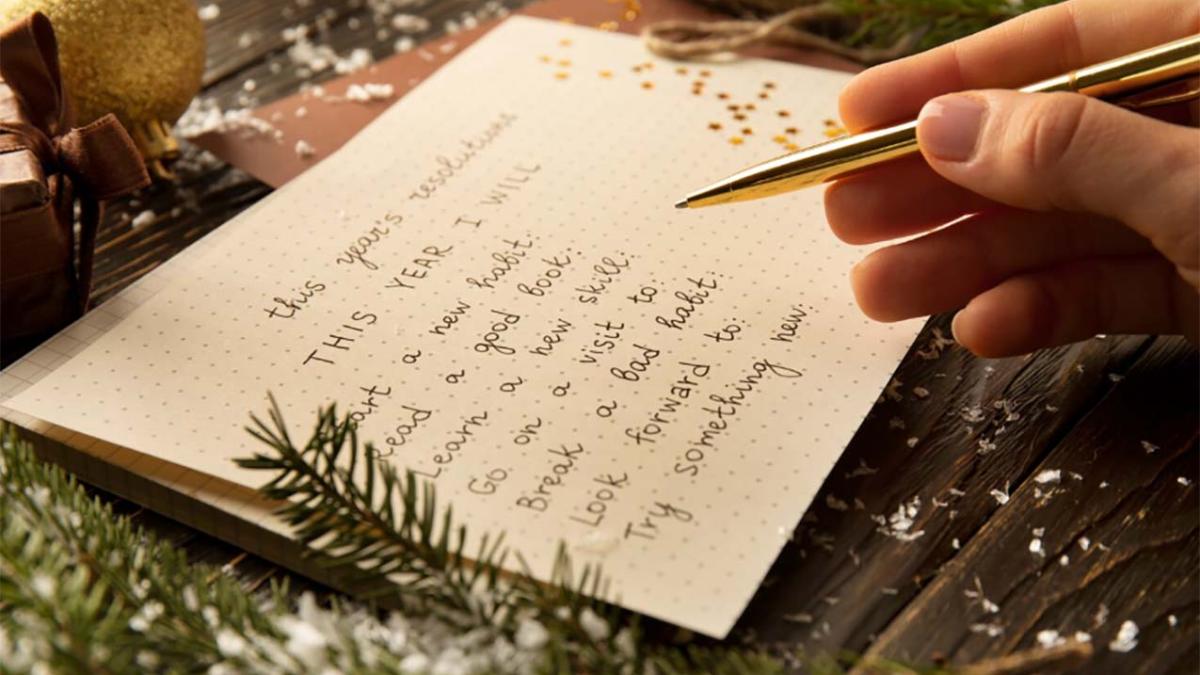 this year's resolutions
THIS YEAR I WILL
art a new habit:
read a good book:
Learn a new skill:
Go on a visit to:
Break a bad habit:
Look forward to:
Try something new: